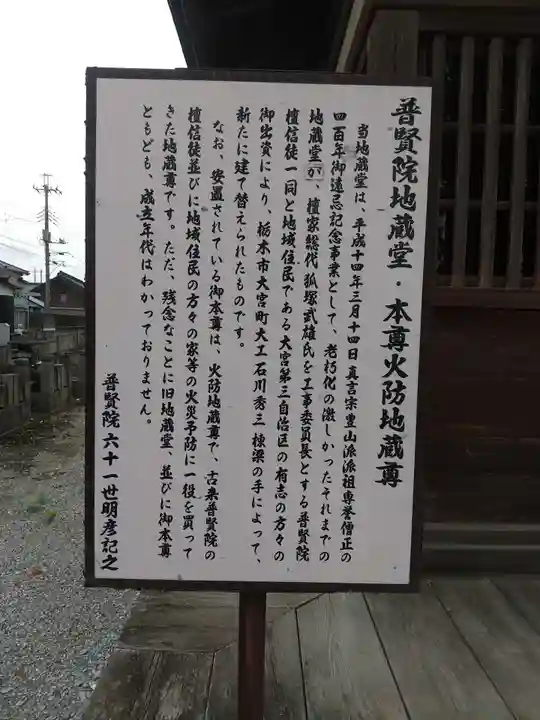 普賢院地蔵堂・本尊火防地蔵尊
当地蔵堂は、平成十四年三月十四日真言宗豊山派派祖専誉僧正の
四百年御遠忌記念事業として、老朽化の激しかったそれまでの
地蔵堂が、檀家総代狐塚武雄氏を工事委員長とする普賢院
檀信徒一同と地域住民である大宮第三自治区の有志の方々の
御出資により、栃木市大宮町大工石川秀三棟梁の手によって、
新たに建て替えられたものです。
なお、安置されている御本尊は、火防地蔵尊で、古来普賢院の
檀信徒並びに地域住民の方々の家等の火災予防に一役を買って
きた地蔵尊です。ただ、残念なことに旧地蔵堂、並びに御本尊
ともども、成立年代はわかっておりません。
普賢院 六十一世明彦記之